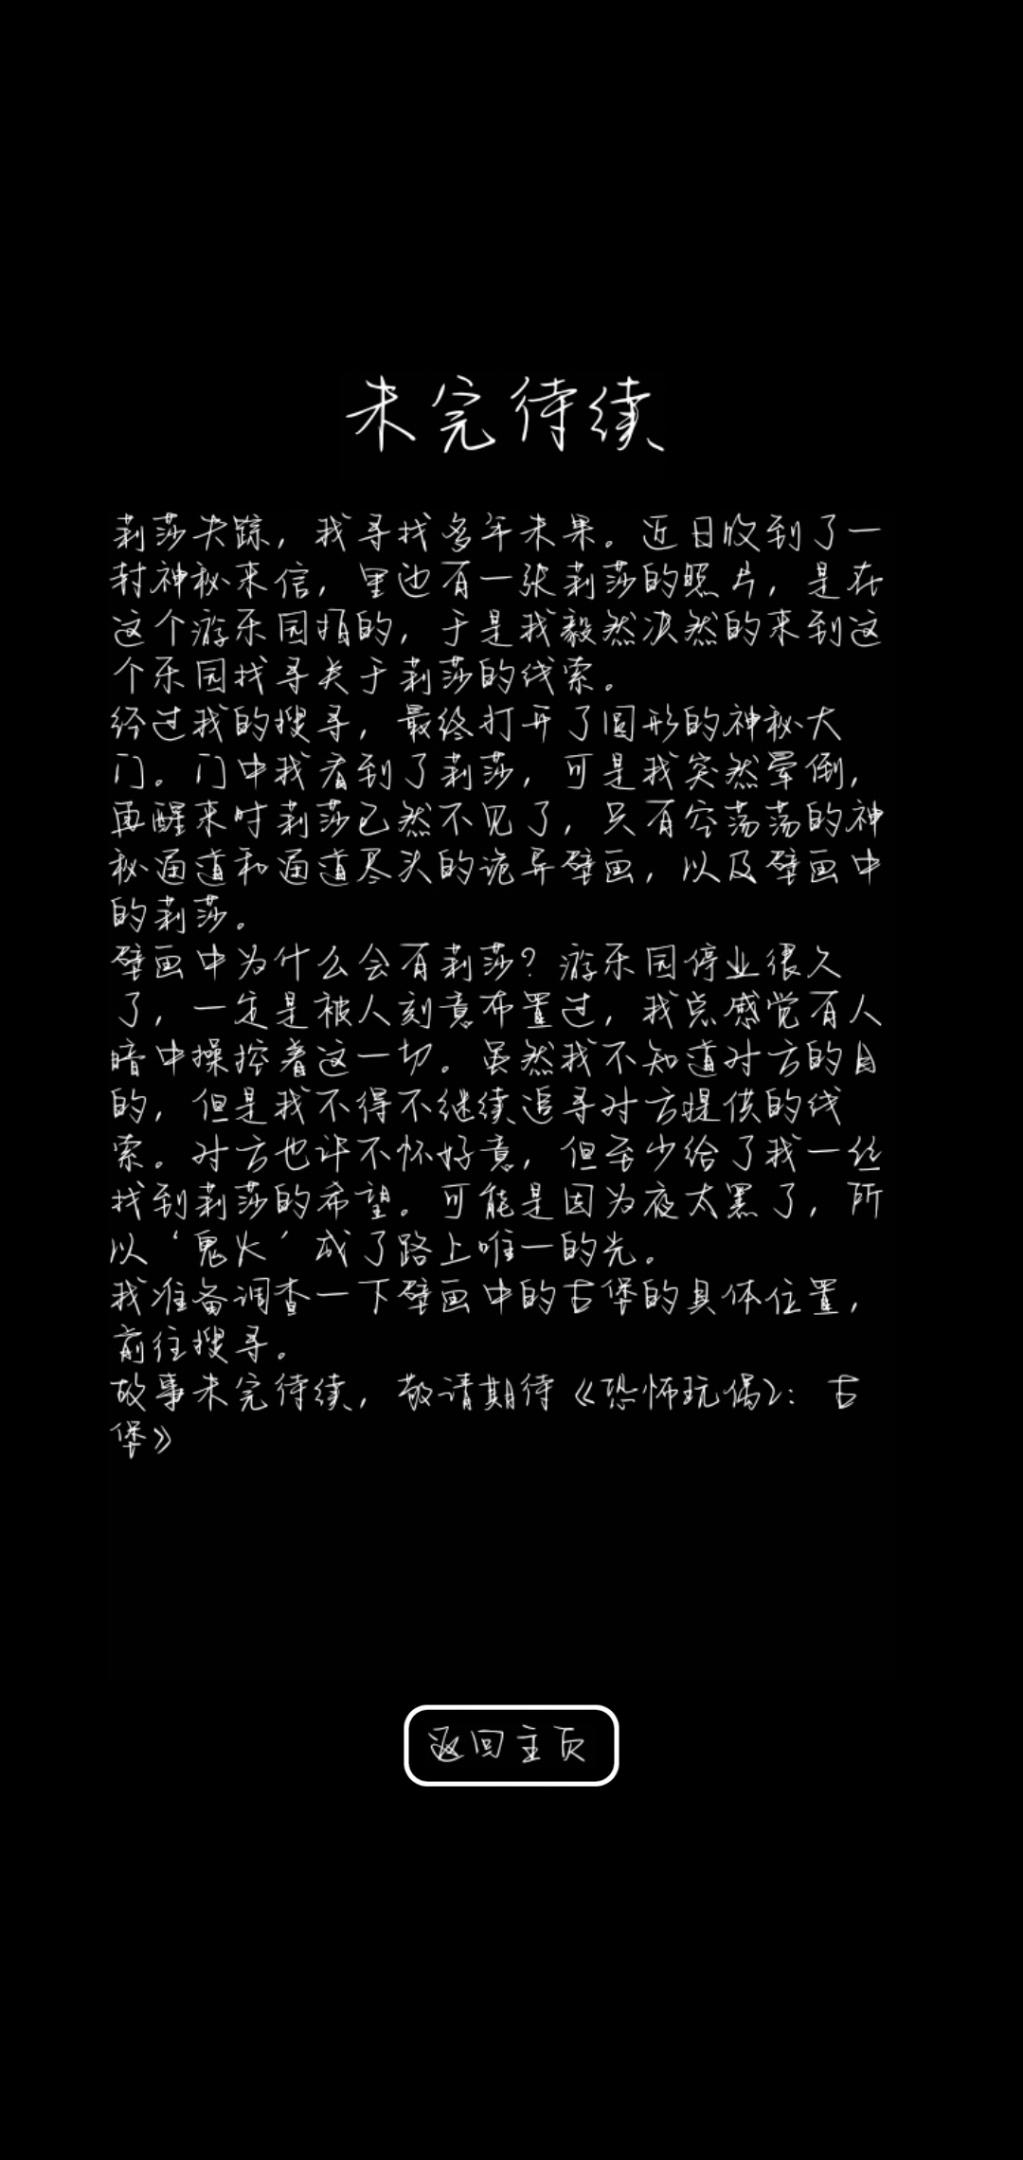 未完待续
莉莎失踪，我寻找多年未果。近日收到了一
封神秘来信，里边有一张莉莎的照片，是在
这个游乐园拍的，于是我毅然决然的来到这
个乐园找寻关于莉莎的线索。
经过我的搜寻，最终打开了圆形的神秘大
门。门中我看到了莉莎，可是我突然晕倒，
再醒来时莉莎已然不见了，只有空荡荡的神
秘通道和通道尽头的诡异壁画，以及壁画中
的莉莎。
壁画中为什么会有莉莎？游乐园停业很久
了，一定是被人刻意布置过，我总感觉有人
暗中操控着这一切。虽然我不知道对方的目
的，但是我不得不继续追寻对方提供的线
索。对方也许不怀好意，但至少给了我一丝
找到莉莎的希望。可能是因为夜太黑了，所
以‘鬼火’成了路上唯一的光。
我准备调查一下壁画中的古堡的具体位置，
前往搜寻。
故事未完待续，敬请期待《恐怖玩偶2：古
堡》
返回主页